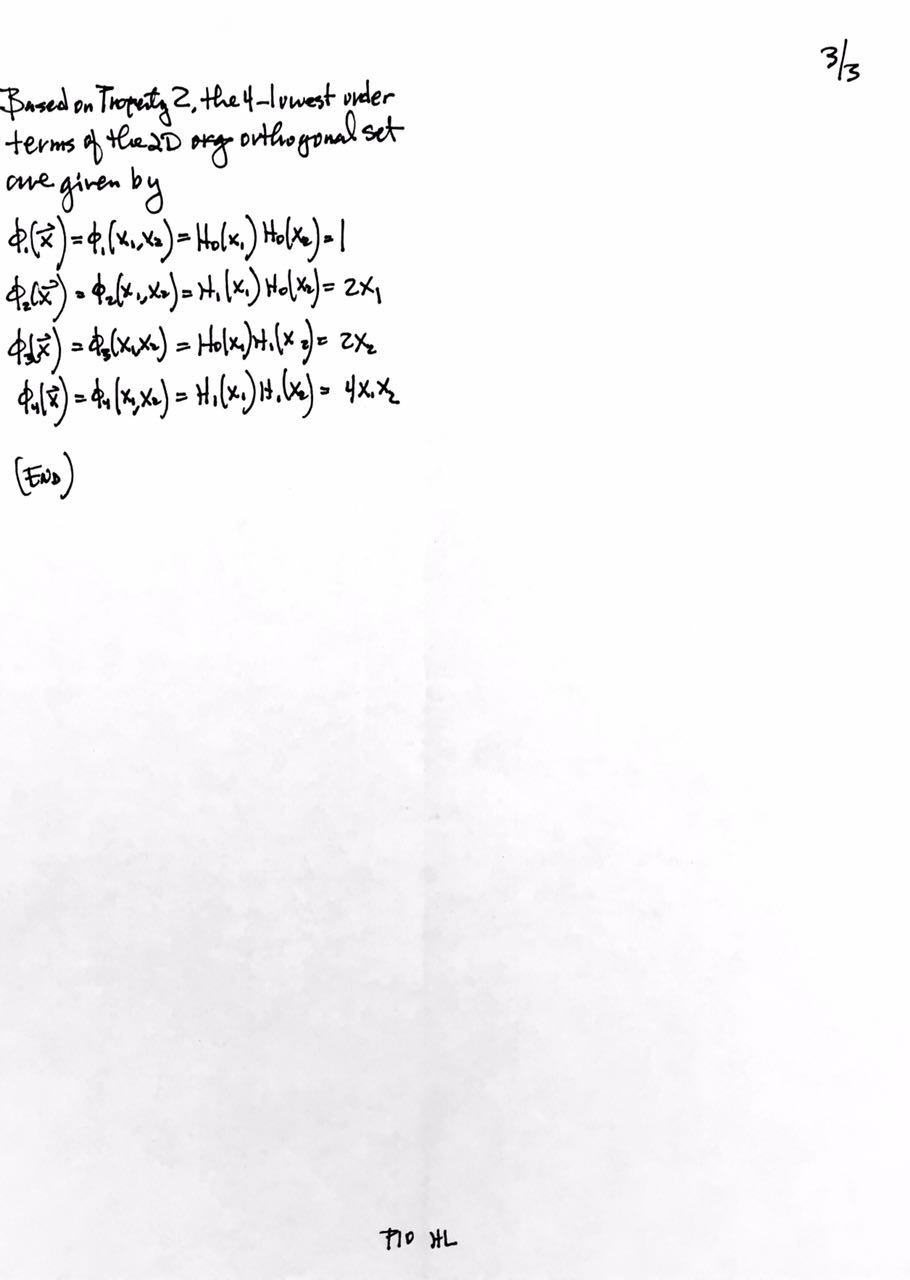 3/3
Based on Property 2, the 4-lowest order
terms of the 2D org orthogonal set
are given by
ϕ₁(x⃗) = ϕ₁(x₁,x₂) = H₀(x₁) H₀(x₂) = 1
ϕ₂(x⃗) = ϕ₂(x₁,x₂) = H₁(x₁) H₀(x₂) = 2x₁
ϕ₃(x⃗) = ϕ₃(x₁,x₂) = H₀(x₁) H₁(x₂) = 2x₂
ϕ₄(x⃗) = ϕ₄(x₁,x₂) = H₁(x₁) H₁(x₂) = 4x₁x₂
(END)
P10 HL